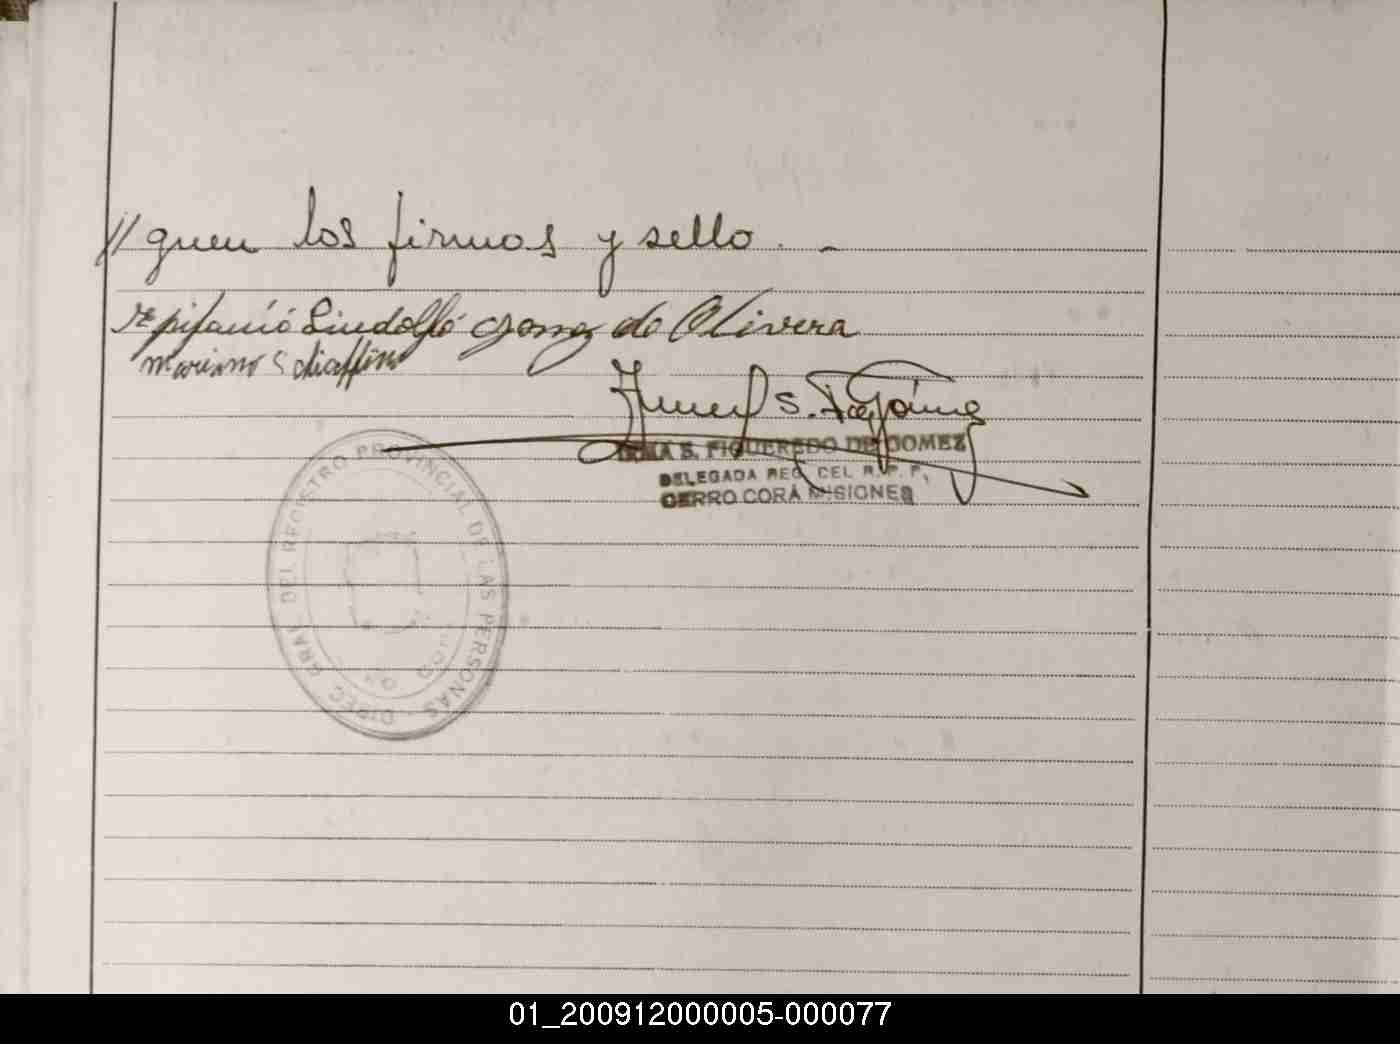 // guen los firmas y sello. -
Epifanio Lindolfo Gomez de Olivera
Mariano Schiaffino
S.
IRMA S. FIGUEREDO DE GOMEZ
DELEGADA REG. CEL R. P. P,
CERRO CORÁ MISIONES
DIREC GRAL DEL REGISTRO PROVINCIAL DE LAS PERSONAS
01_200912000005-000077